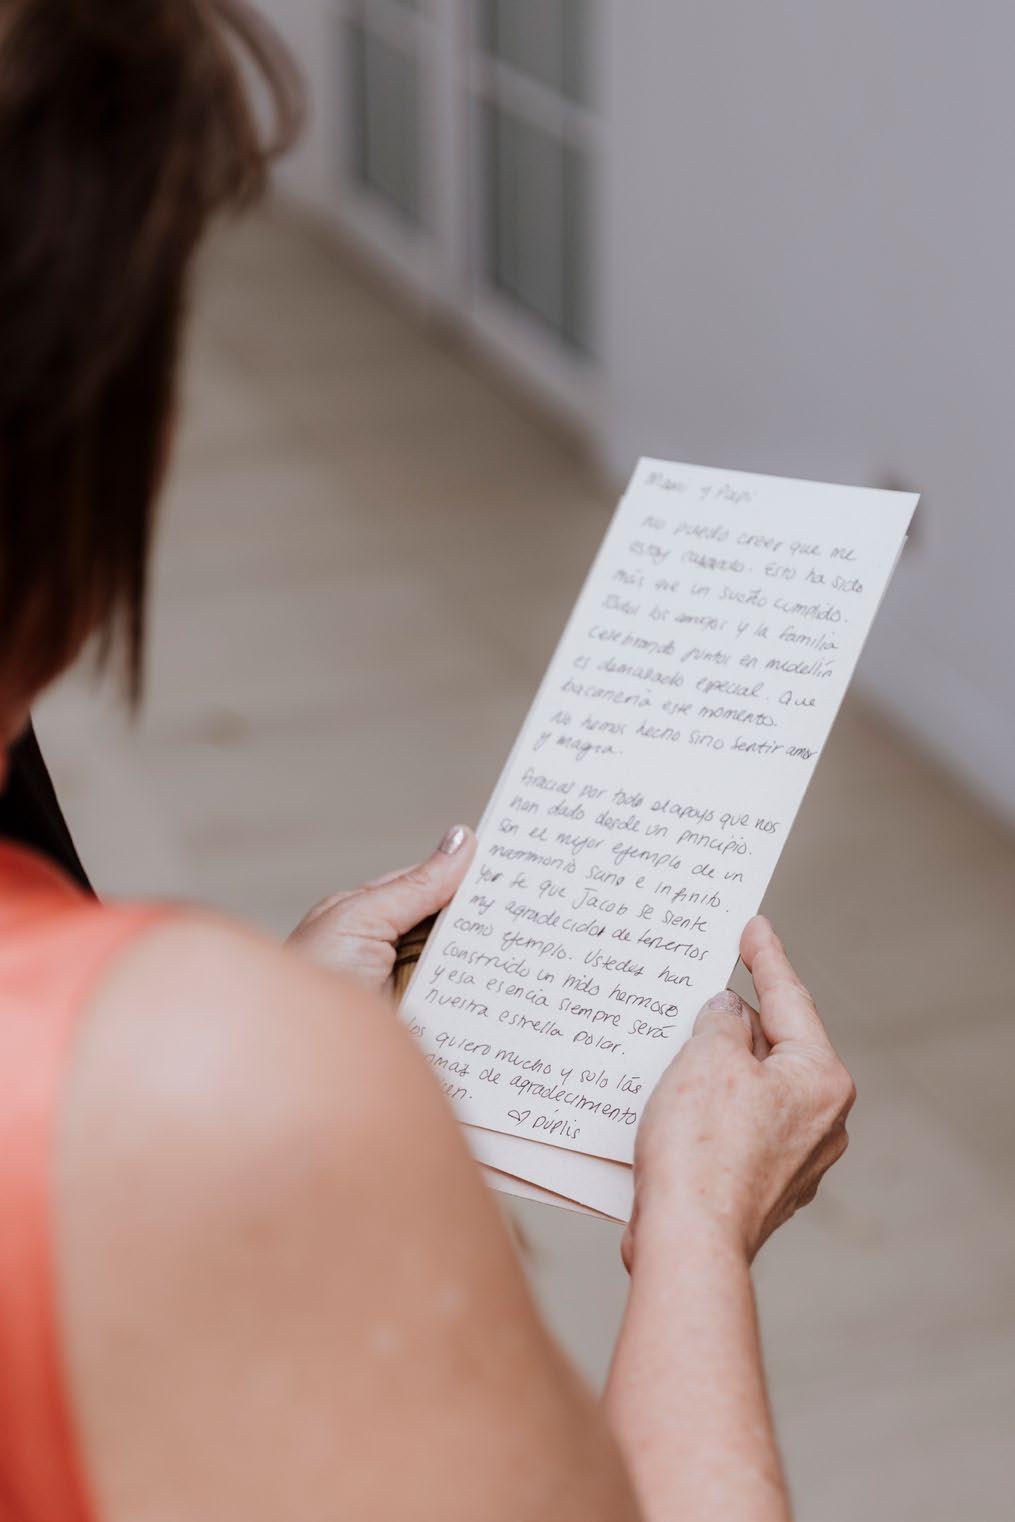 Mami y Papi
No puedo creer que me
estoy casando. Esto ha sido
más que un sueño cumplido.
Todos los amigos y la familia
celebrando juntos en medellín
es demasiado especial. Que
bacanería este momento.
No hemos hecho sino sentir amor
y magia.
Gracias por todo el apoyo que nos
han dado desde un principio.
Son el mejor ejemplo de un
matrimonio sano e infinito.
Yo se que Jacob se siente
muy agradecido de tenerlos
como ejemplo. Ustedes han
construido un nido hermoso
y esa esencia siempre será
nuestra estrella polar.
los quiero mucho y solo
de agradecimiento
♡ púplis